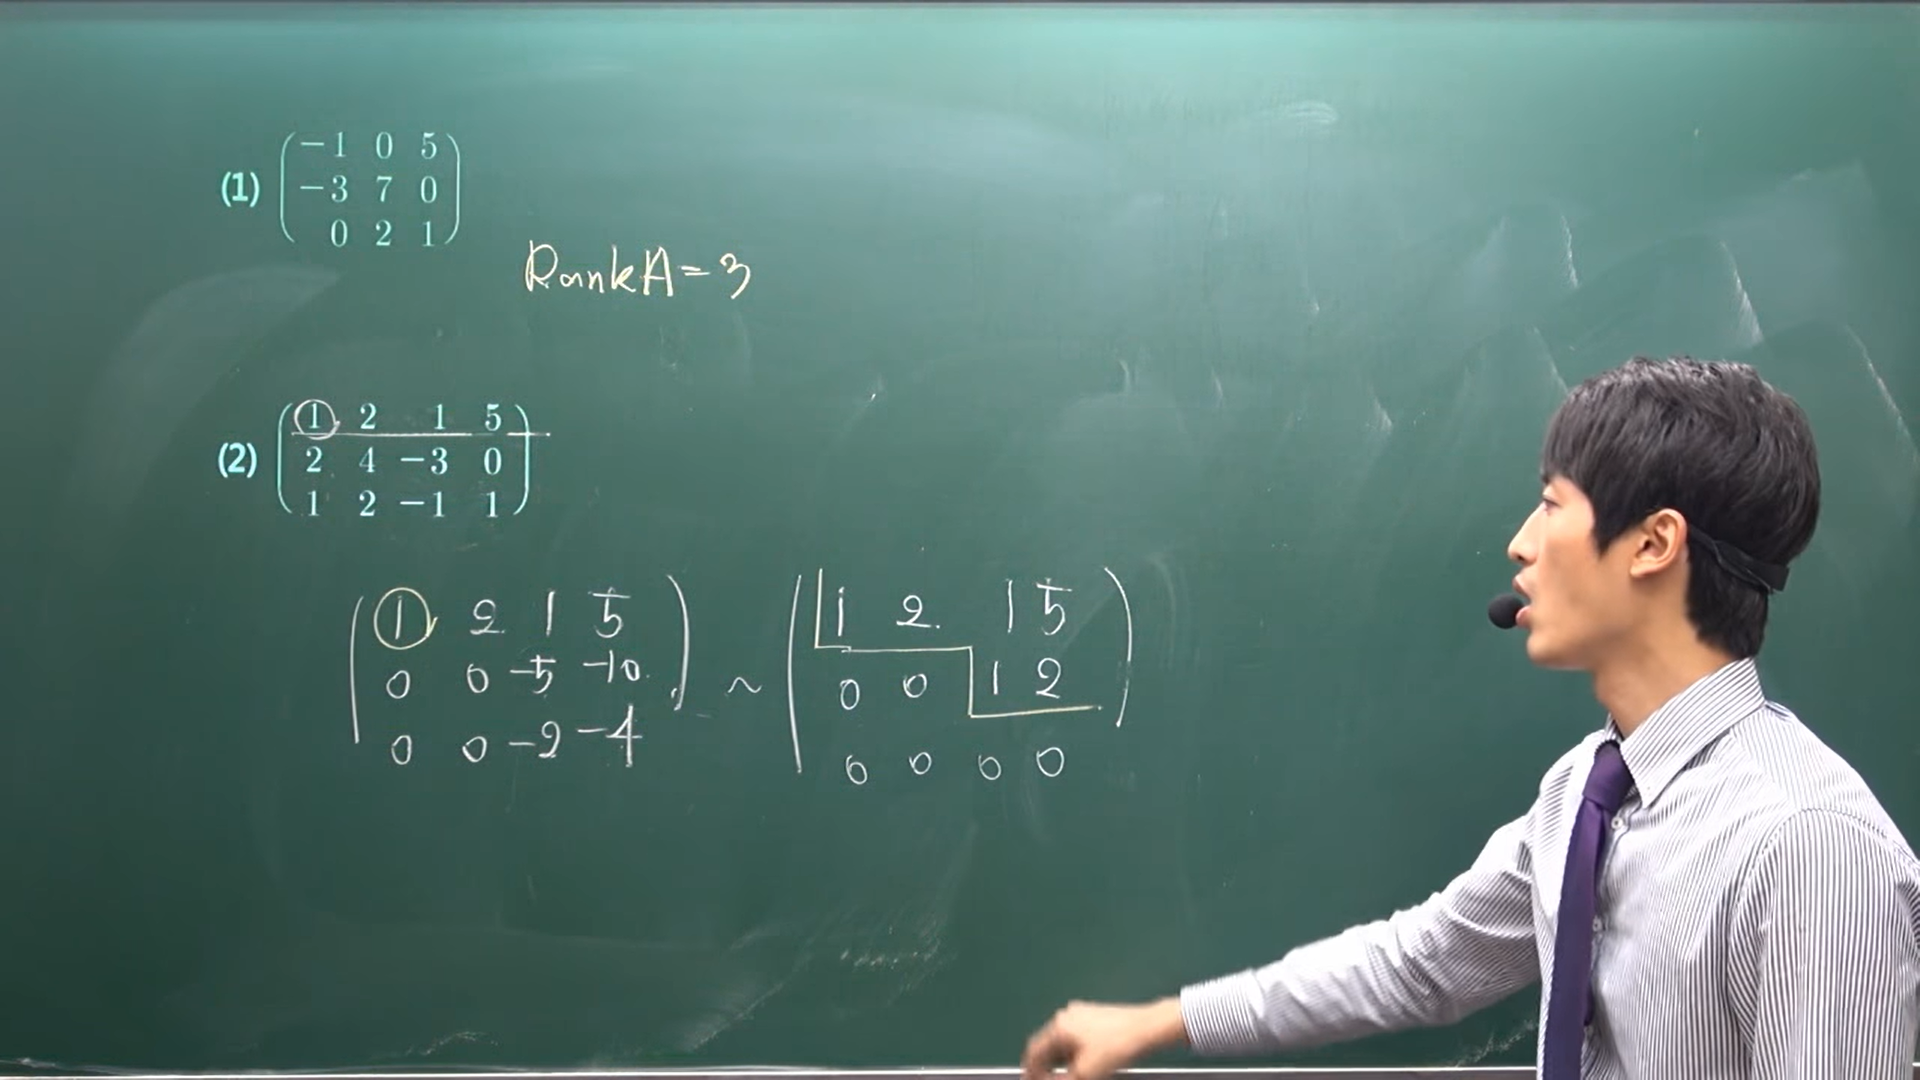 (1) -1 0 5
-3 7 0
0 2 1
RankA=3
(2) 1 2 1 5
2 4 -3 0
1 2 -1 1
1 2 1 5
0 0 -5 -10
0 0 -2 -4
~
1 2 1 5
0 0 1 2
0 0 0 0